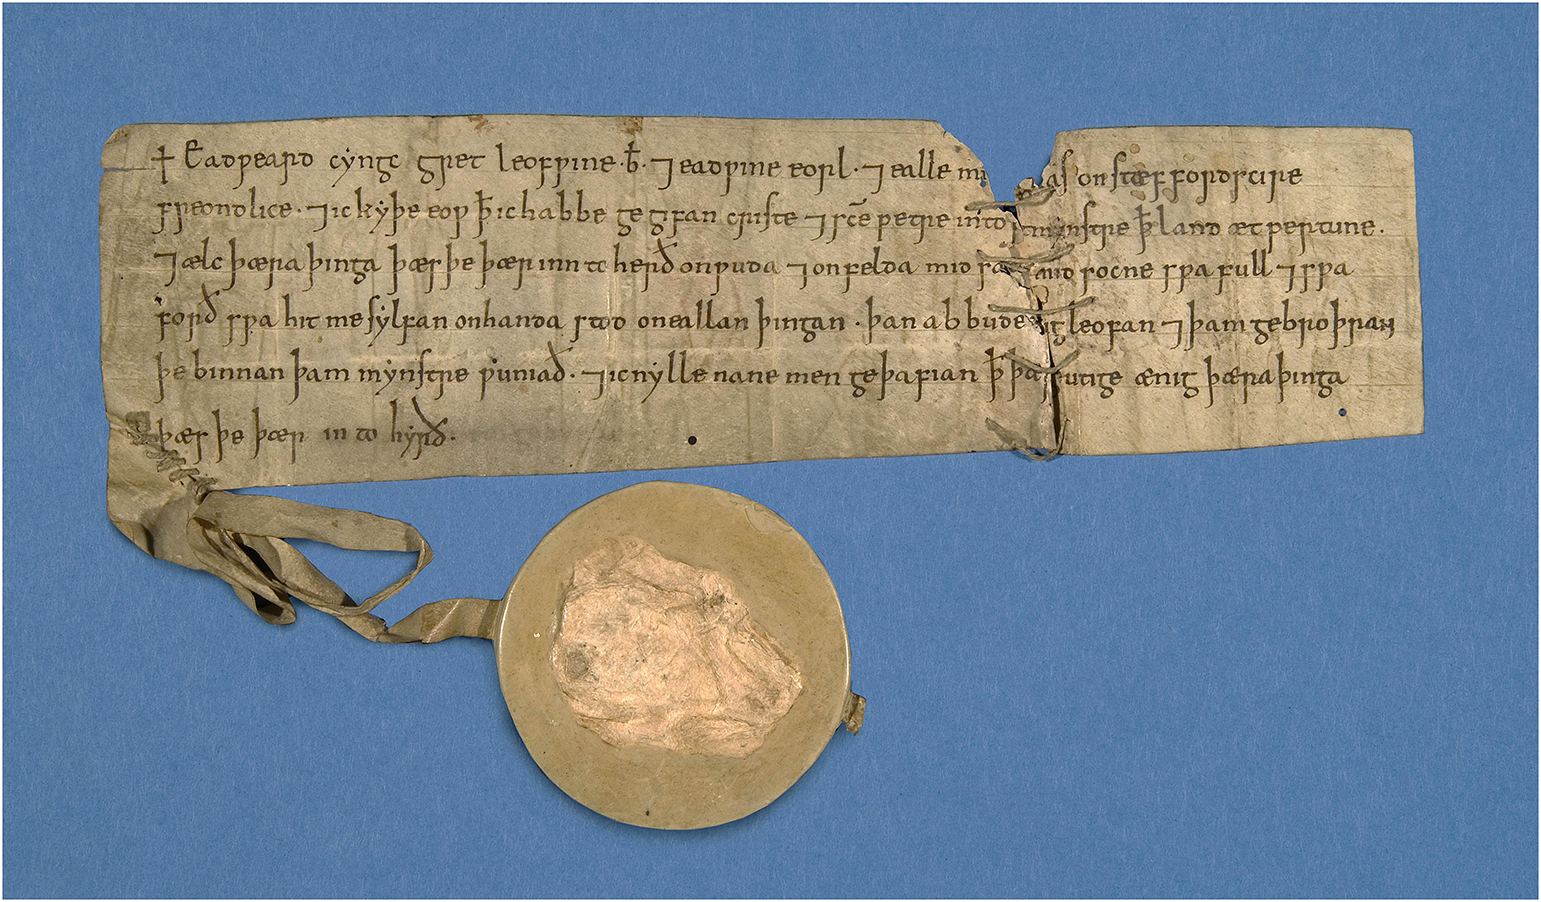 + Eadƿeard cẏngc gret leofƿine·b̄·⁊ eadƿine eorl·⁊ ealle on stæffordscire
freondlice·⁊ ic kẏþe eoƿ ꝥ ic habbe gegifan criste ⁊ sc̄e petre into mẏnstre ꝥ land æt pertune.
⁊ ælc þæra þinga þæs þe þær inn to herð on ƿuda ⁊ on felda mid saca and socne sƿa full ⁊ sƿa
forð sƿa hit me sẏlfan on handa stod on eallan þingan · þan abbude leofan ⁊ þam gebroþran
þe binnan þam mẏnstre ƿuniað·⁊ ic nẏlle nane men geþafian ꝥ þar utige ænig þæra þinga
þæs þe þær in to hẏrð.